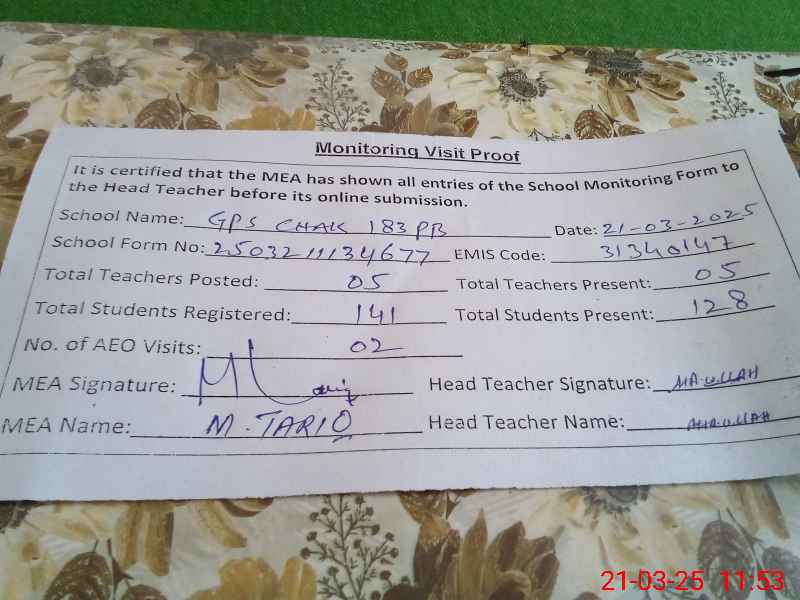 Monitoring Visit Proof
It is certified that the MEA has shown all entries of the School Monitoring Form to
the Head Teacher before its online submission.
School Name: GPS CHAK 183 PB Date: 21-03-2025
School Form No: 2503211134677 EMIS Code: 31340147
Total Teachers Posted: 05 Total Teachers Present: 05
Total Students Registered: 141 Total Students Present: 128
No. of AEO Visits: 02
MEA Signature: Head Teacher Signature:
MEA Name: M. TARIQ Head Teacher Name:
21-03-25 11:53